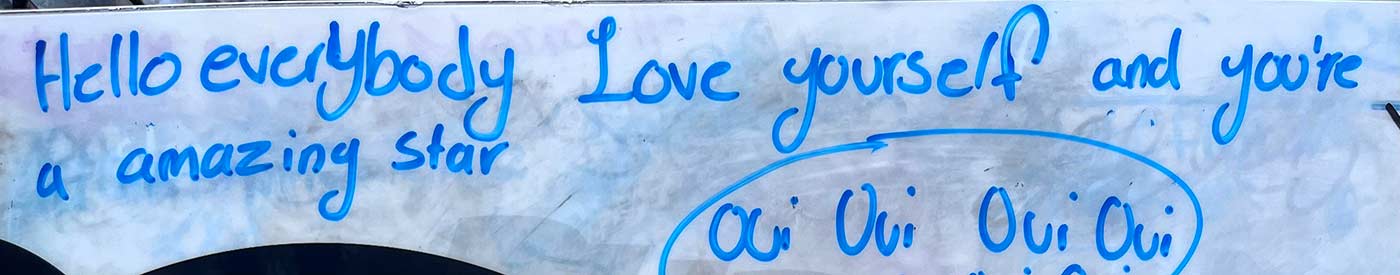 Hello everybody Love yourself and you're
a amazing star
Oui Oui Oui Oui